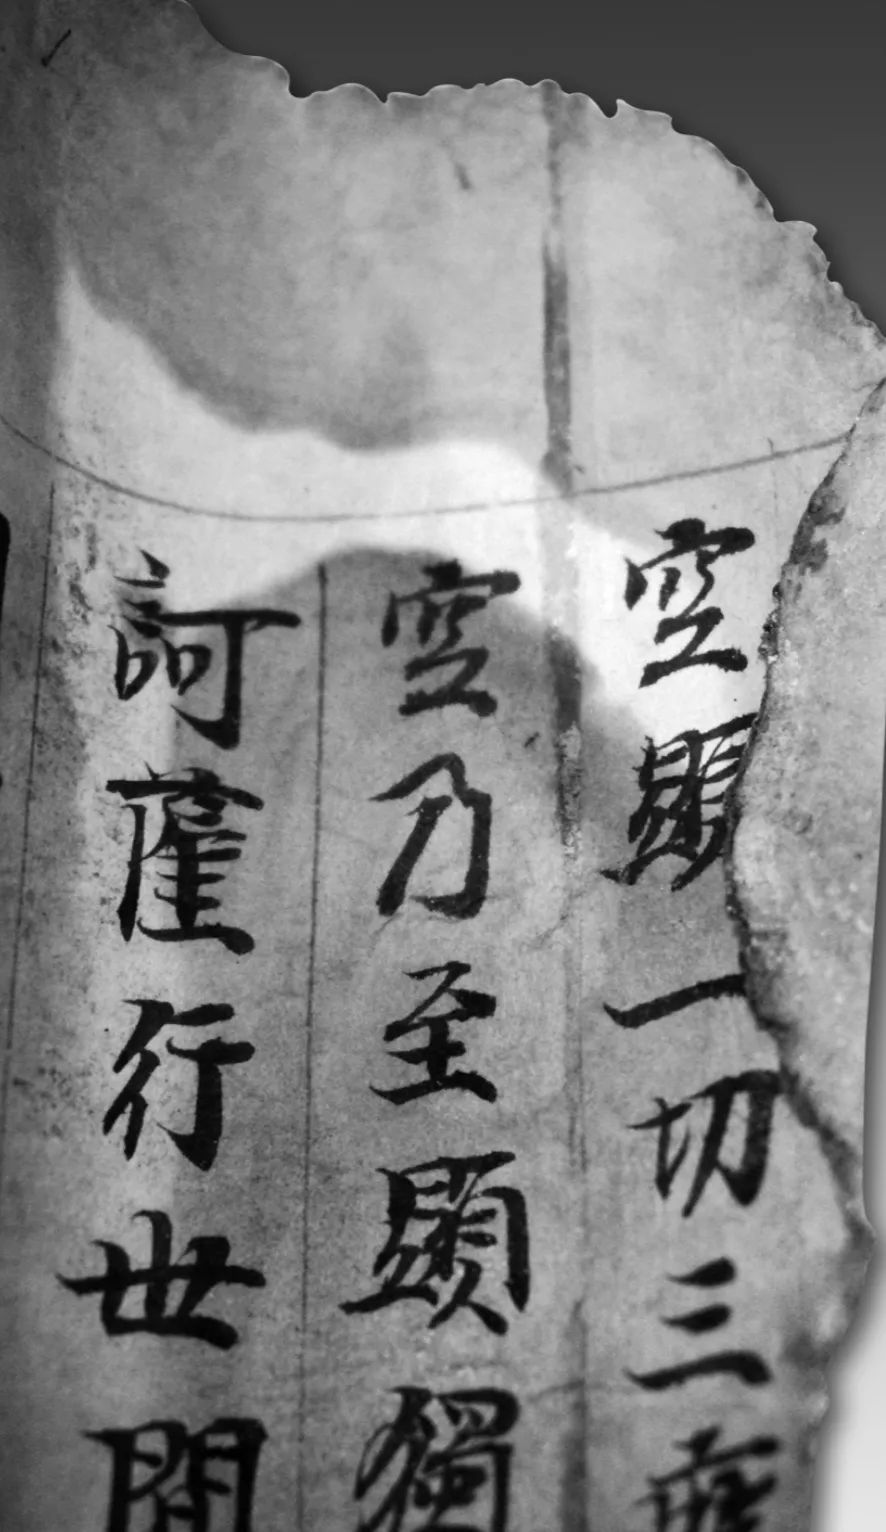 空顯一切三摩
空乃至顯獨
訶薩行世間